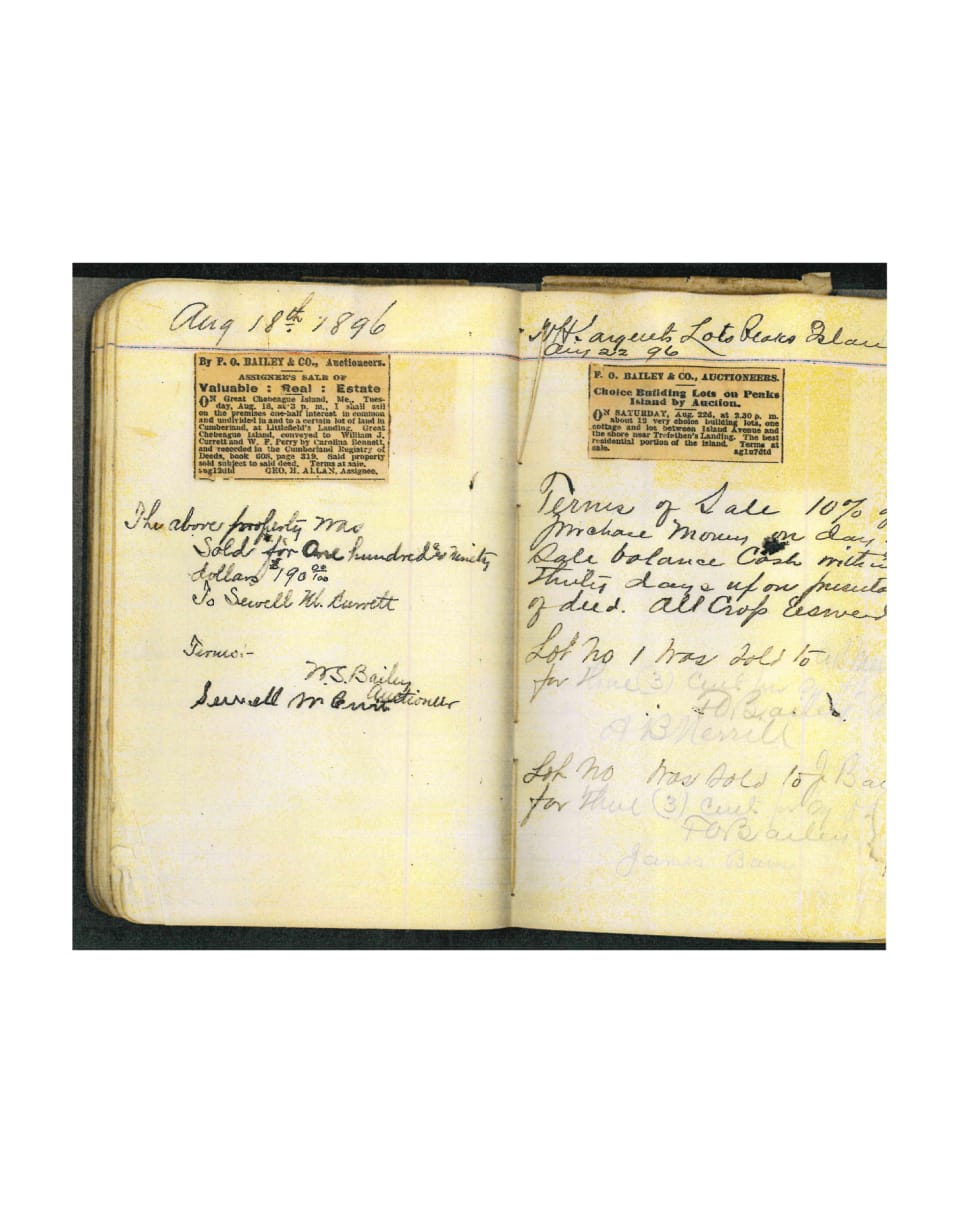 Aug 18th 1896
By F. O. BAILEY & CO., Auctioneers.
ASSIGNEE'S SALE OF
Valuable : Real : Estate
ON Great Chebeague Island, Me., Tues-
day, Aug. 18, at 3 p. m., I shall sell
on the premises one-half interest in common
and undivided in and to a certain lot of land in
Cumberland, at Littlefield's Landing, Great
Chebeague Island, conveyed to William J.
Currett and W. F. Perry by Carolina Bennett,
and recorded in the Cumberland Registry of
Deeds, book 608, page 319. Said property
sold subject to said deed. Terms at sale.
aug12dtd GEO. H. ALLAN, Assignee.
The above property was
Sold for One hundred & ninety
dollars $190 00/100
To Sewell W.
Terms:-
W. S. Bailey
Auctioneer
Sewell
Lots Peaks Islan
Aug 22 96
F. O. BAILEY & CO., AUCTIONEERS.
Choice Building Lots on Peaks
Island by Auction.
ON SATURDAY, Aug. 22d, at 2.30 p. m.
about 12 very choice building lots, one
cottage and lot between Island Avenue and
the shore near Trefethen's Landing. The best
residential portion of the island. Terms at
sale. ag1u7dtd
Terms of Sale 10%
Purchase Money on day
Sale balance Cash within
thirty days upon
of deed. All Crop
Lot No 1 was sold to
for three (3) Cent
F O Bailey
A B Merrill
Lot No was sold to J
for three (3) Cent
F O Bailey
James